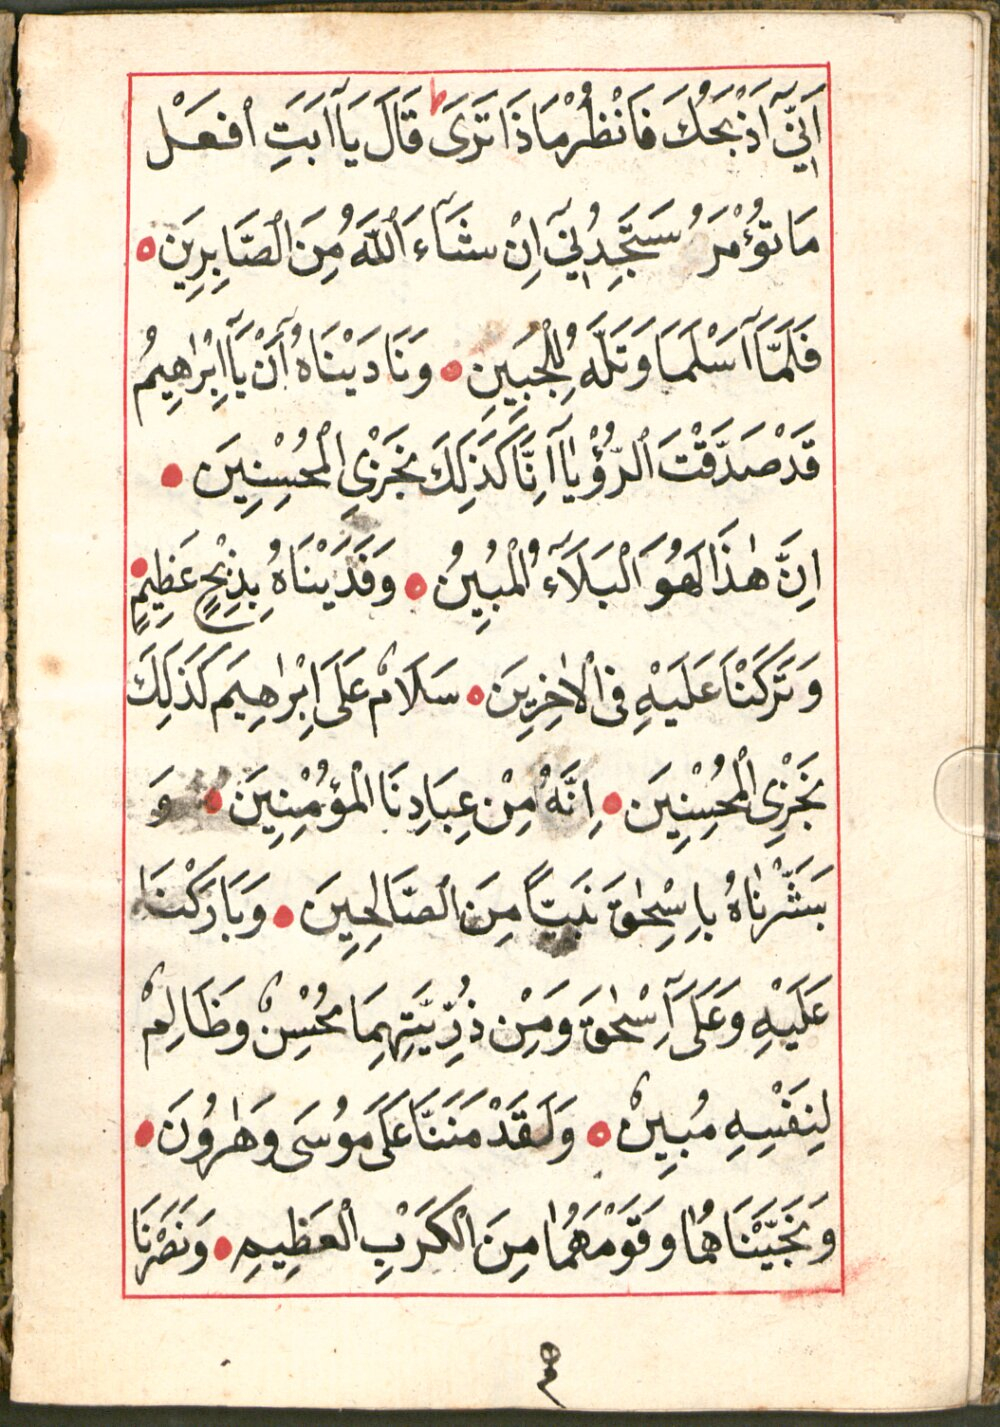 اَنِّيٓ اَذْبَحُكَ فَانْظُرْ مَاذَا تَرَىٰ ط قَالَ يَآ اَبَتِ افْعَلْ
مَا تُؤْمَرُ سَتَجِدُنِيٓ اِنْ شَآءَ اللّٰهُ مِنَ الصَّابِرِينَ
فَلَمَّآ اَسْلَمَا وَتَلَّهُ لِلْجَبِينِ وَنَادَيْنَاهُ اَنْ يَآ اِبْرٰهِيمُ
قَدْ صَدَّقْتَ الرُّؤْيَآ اِنَّا كَذَلِكَ نَجْزِي الْمُحْسِنِينَ
اِنَّ هٰذَا لَهُوَ الْبَلَآءُ الْمُبِينُ وَفَدَيْنَاهُ بِذِبْحٍ عَظِيمٍ
وَتَرَكْنَا عَلَيْهِ فِي الْاٰخِرِينَ سَلَامٌ عَلَى اِبْرٰهِيمَ كَذَلِكَ
نَجْزِي الْمُحْسِنِينَ اِنَّهُ مِنْ عِبَادِنَا الْمُؤْمِنِينَ وَ
بَشَّرْنَاهُ بِاِسْحٰقَ نَبِيًّا مِنَ الصَّالِحِينَ وَبَارَكْنَا
عَلَيْهِ وَعَلَىٓ اِسْحٰقَ وَمِنْ ذُرِّيَّتِهِمَا مُحْسِنٌ وَظَالِمٌ
لِنَفْسِهِ مُبِينٌ وَلَقَدْ مَنَنَّا عَلَى مُوسَى وَهٰرُونَ
وَنَجَّيْنَاهُمَا وَقَوْمَهُمَا مِنَ الْكَرْبِ الْعَظِيمِ وَنَصَرْنَا